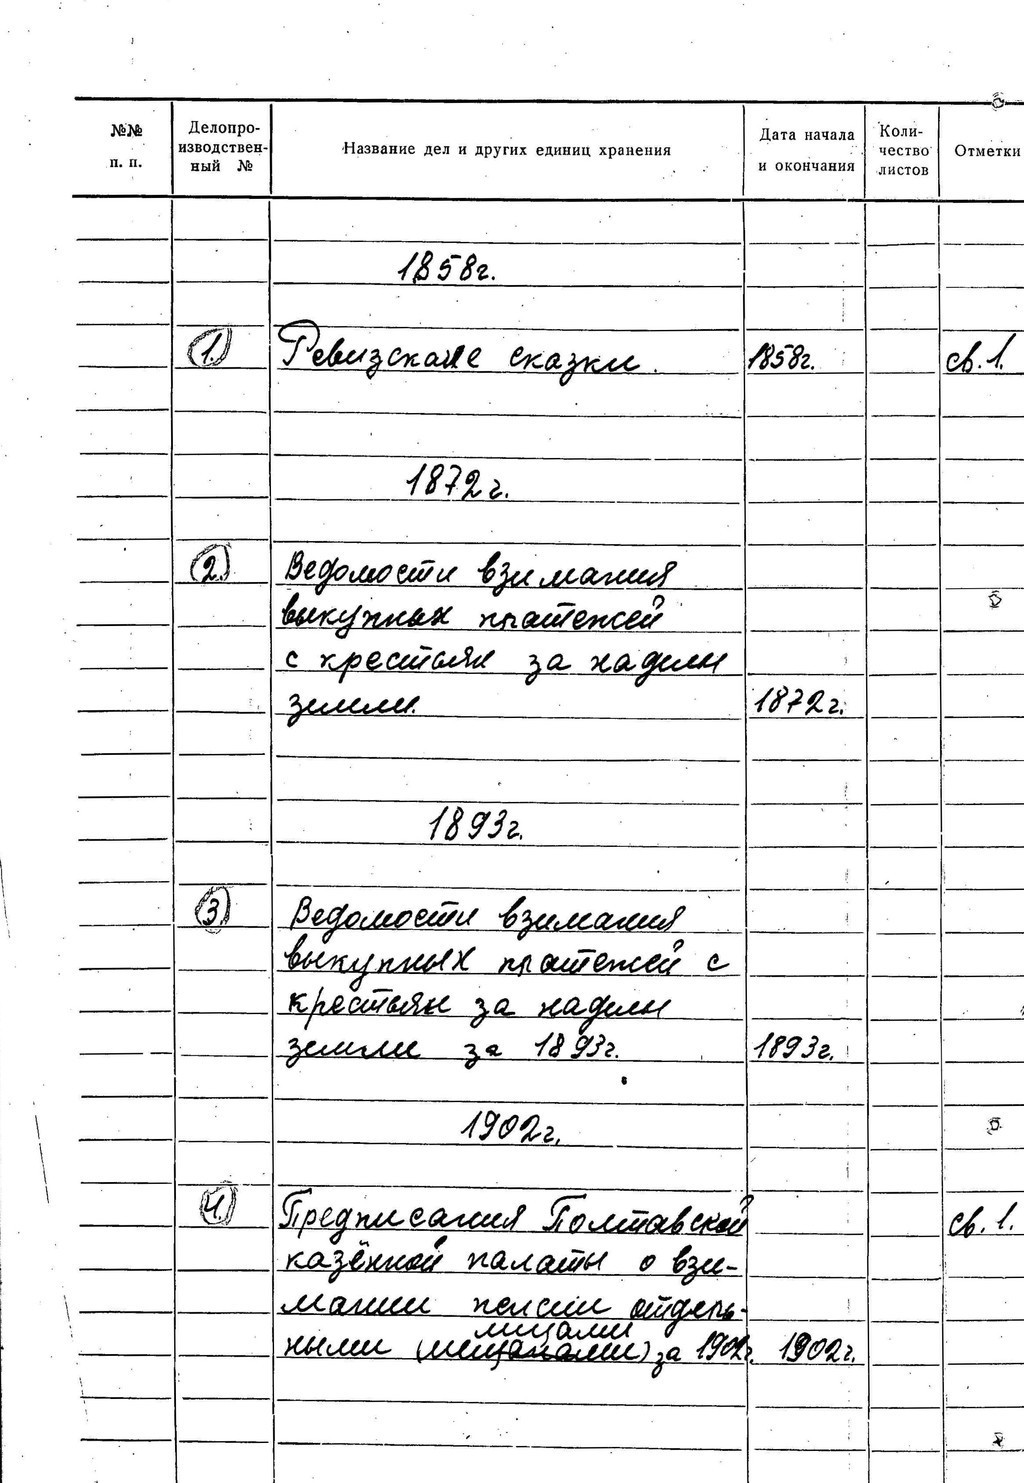 №№ п. п.
Делопро-
изводствен-
ный №
Название дел и других единиц хранения
Дата начала
и окончания
Коли-
чество
листов
Отметки
1858г.
1. Ревизские сказки 1858г. св. 1.
1872г.
2. Ведомости взимания
выкупных платежей
с крестьян за наделы
земли. 1872г.
1893г.
3. Ведомости взимания
выкупных платежей с
крестьян за наделы
земли за 1893г. 1893г.
1902г.
4. Предписания Полтавской св. 1.
казённой палаты о взи-
мании пенсии отдель-
лицами
ными (мещанами) за 1902г. 1902г.